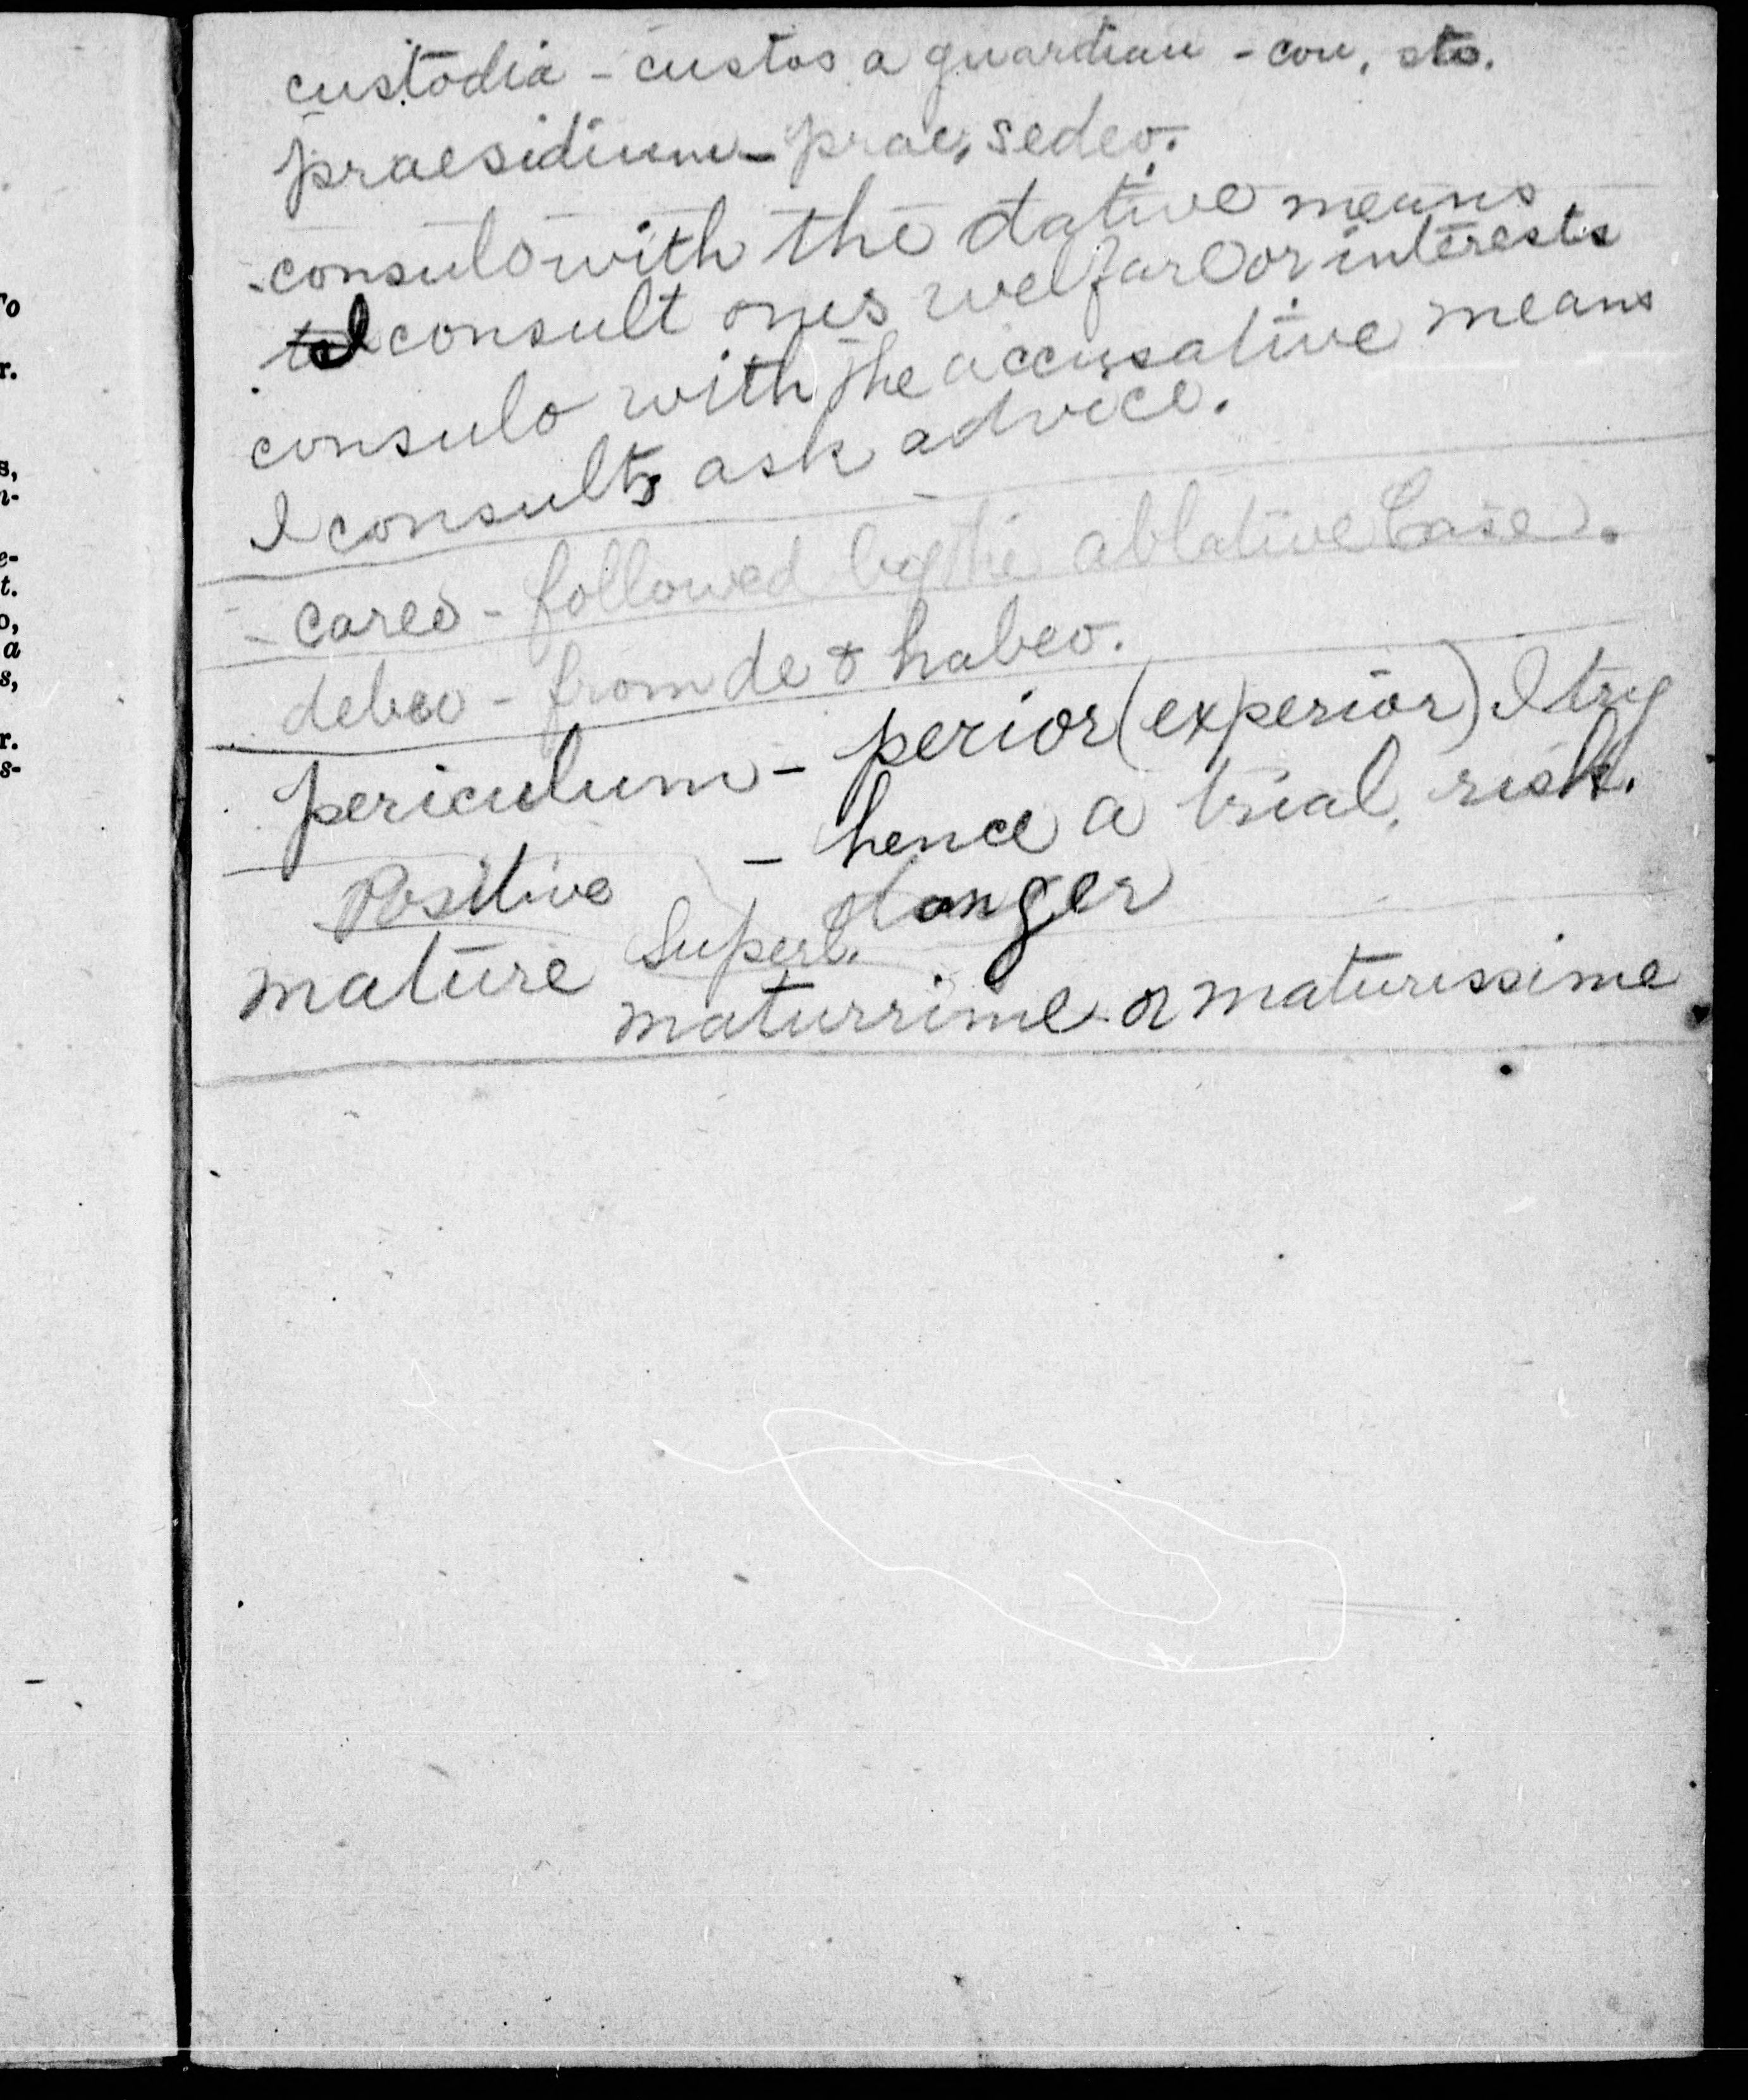 custodia - custos a guardian - con, sto.
praesidium - prae, sedeo.
consulo with the dative means
I consult ones welfare or interests
consulo with the accusative means
I consult, ask advice.
- careo - followed by the ablative Case.
debeo - from de & habeo.
periculum - perior (experior) I try
- hence a trial, risk.
danger
Positive Superl.
mature maturrime or maturissime
To
r.
s,
n-
e-
t.
o,
a
s,
r.
s-